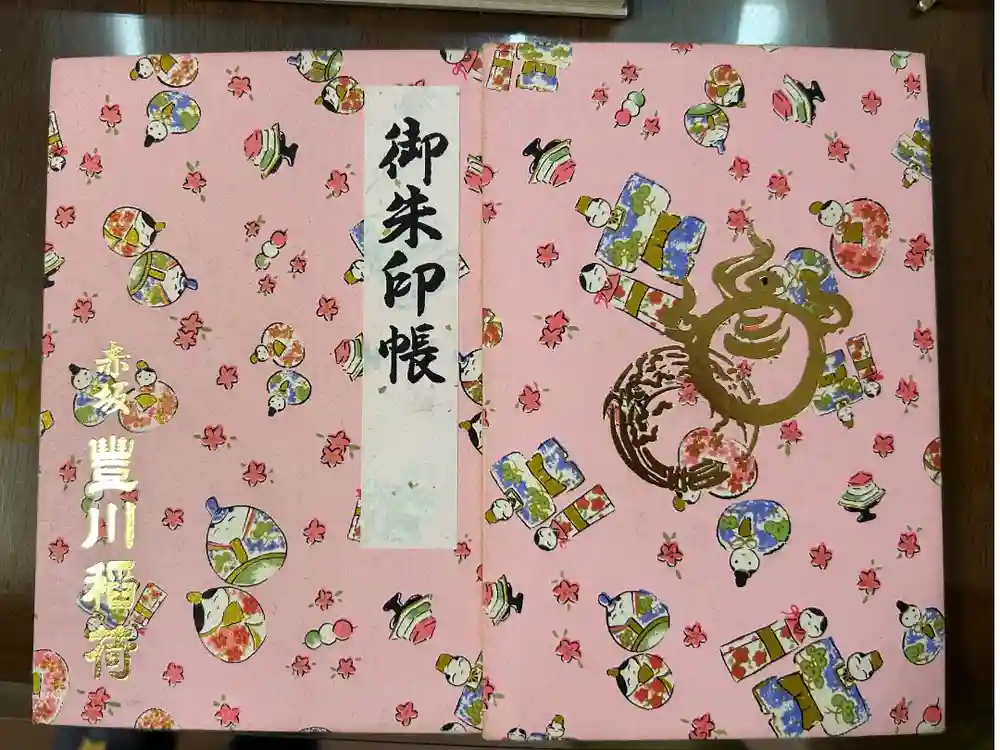 御朱印帳
赤坂
豐川稻荷